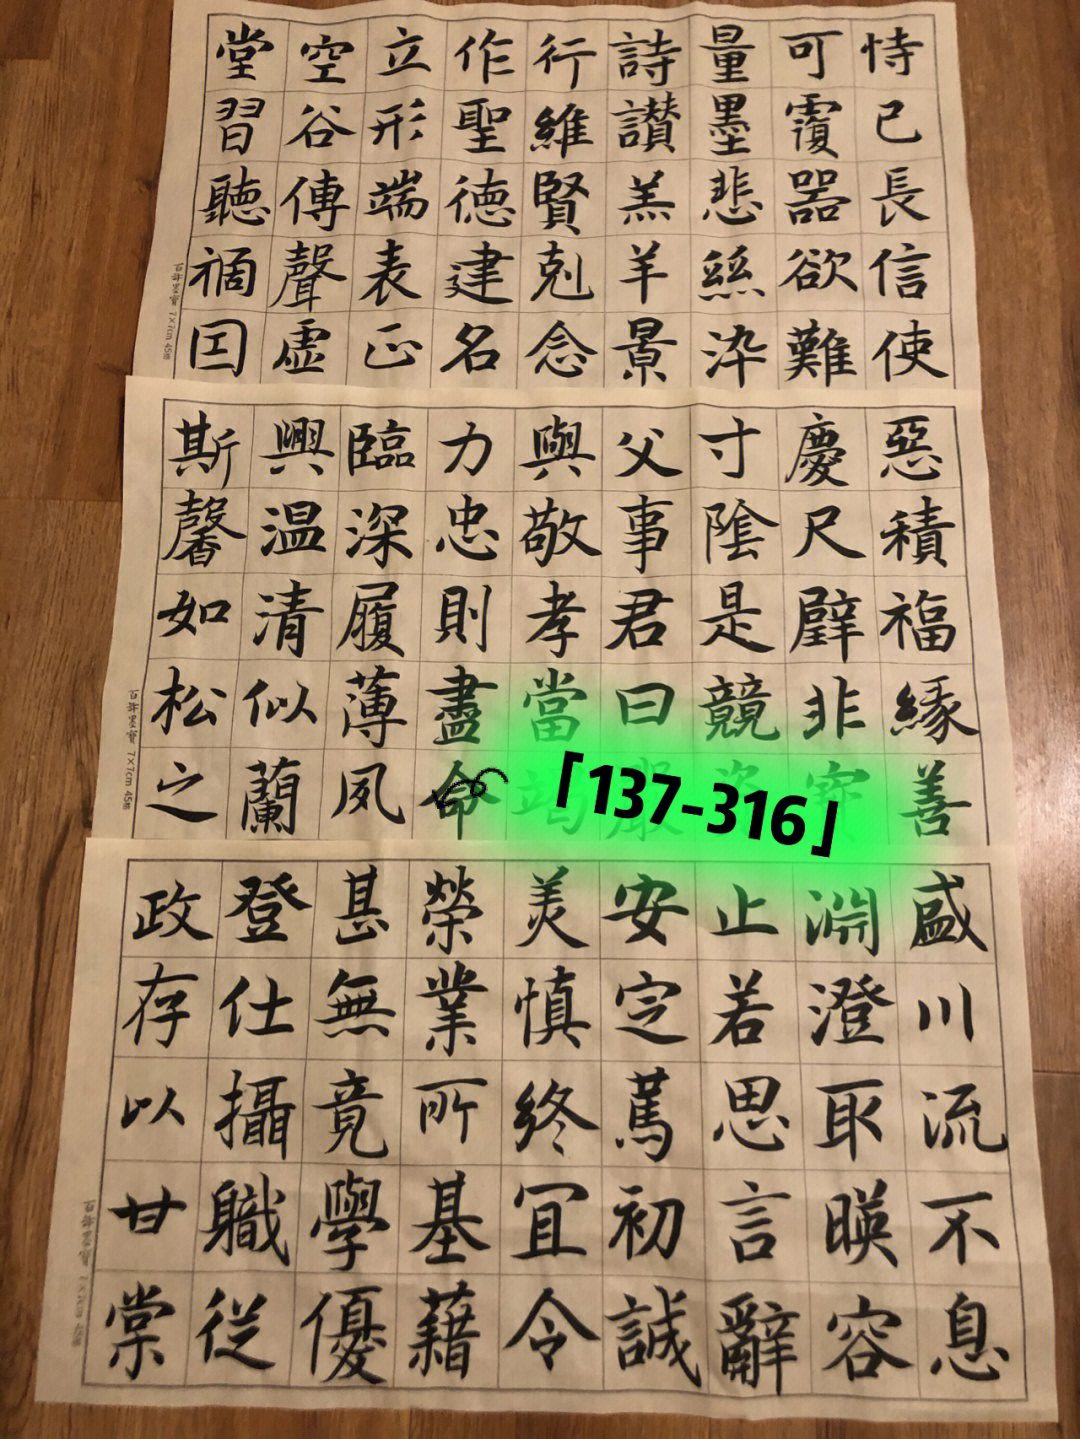 恃己長信使
可覆器欲難
量墨悲絲染
詩讃羔羊景
行維賢剋念
作聖德建名
立形端表正
空谷傳聲虛
堂習聽禍因
墨寶 7×7cm 45格
惡積福緣善
慶尺璧非寶
寸陰是競資
父事君曰嚴
與敬孝當竭
力忠則盡命
臨深履薄夙
興温清似蘭
斯馨如松之
墨寶 7×7cm 45格
「137-316」
盛川流不息
淵澄取暎容
止若思言辭
安定篤初誠
美慎終宜令
榮業所基藉
甚無竟學優
登仕攝職從
政存以甘棠
墨寶 7×7cm 45格